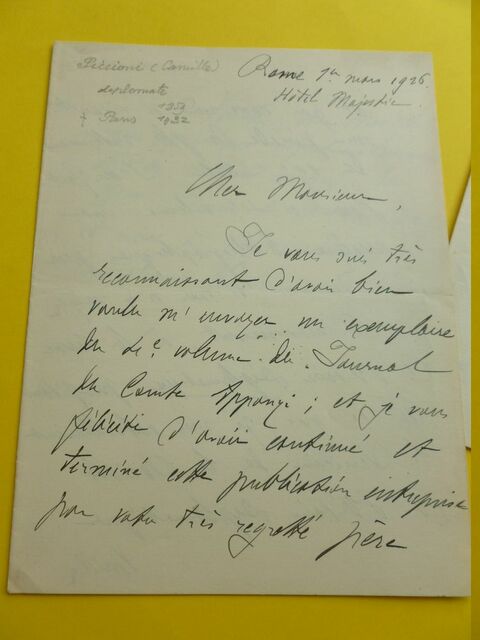 Piccioni (Camille)
diplomate
1859
+ Paris 1932
Rome 1er mars 1926.
Hôtel Majestic
Cher Monsieur,
Je vous suis très
reconnaissant d'avoir bien
voulu m'envoyer un exemplaire
du 4e volume du Journal
du Comte Apponyi ; et je vous
félicite d'avoir continué et
terminé cette publication entreprise
par votre très regretté frère